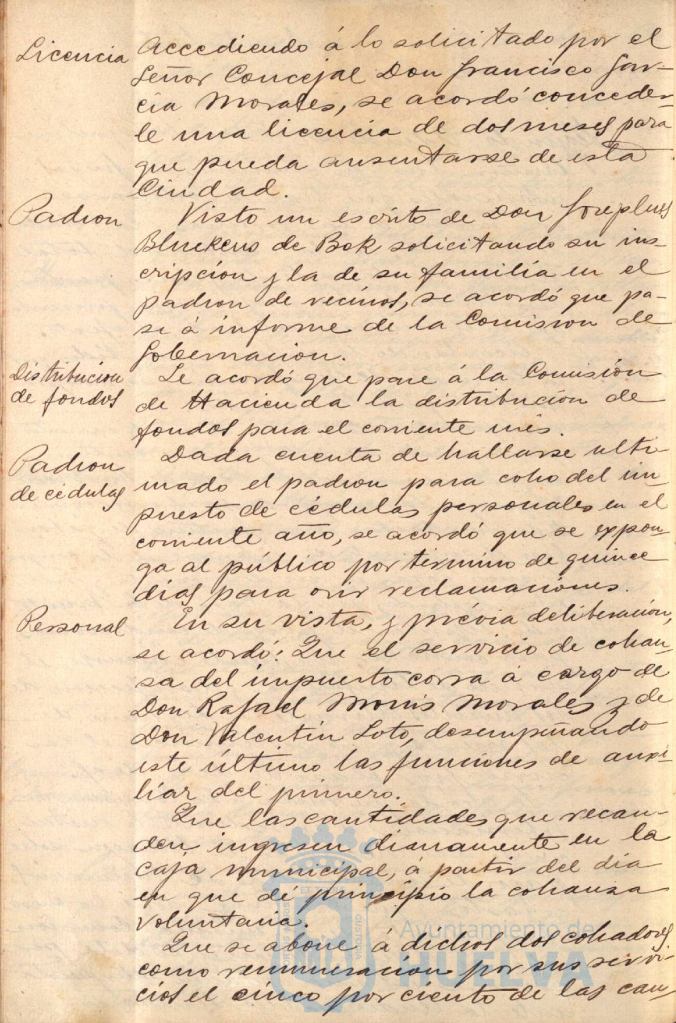 Licencia
Accediendo á lo solicitado por el
Señor Concejal Don Francisco Gar-
cia Morales, se acordó conceder-
le una licencia de dos meses para
que pueda ausentarse de esta
Ciudad.
Padron
Visto un escrito de Don
de Bok solicitando su ins-
cripción y la de su familia en el
padron de vecinos, se acordó que pa-
se á informe de la Comision de
Gobernacion.
Distribucion
de fondos
Se acordó que pase á la Comisión
de Hacienda la distribución de
fondos para el corriente més.
Padron
de cédulas
Dada cuenta de hallarse ulti-
mado el padron para cobro del im-
puesto de cédulas personales en el
corriente año, se acordó que se expon-
ga al público por término de quince
días para oir reclamaciones.
Personal
En su vista, y prévia deliberación,
se acordó: Que el servicio de cobran-
sa del impuesto corra á cargo de
Don Rafael Monis Morales y de
Don Valentín Soto, desempeñando
este último las funciones de auxi-
liar del primero.
Que las cantidades que recau-
den ingresen diariamente en la
caja municipal, á partir del dia
en que dé principio la cobranza
voluntaria.
Que se abone á dichos dos cobradores,
como remuneracion por sus servi-
cios el cinco por ciento de las can-
Ayuntamiento de
HUELVA